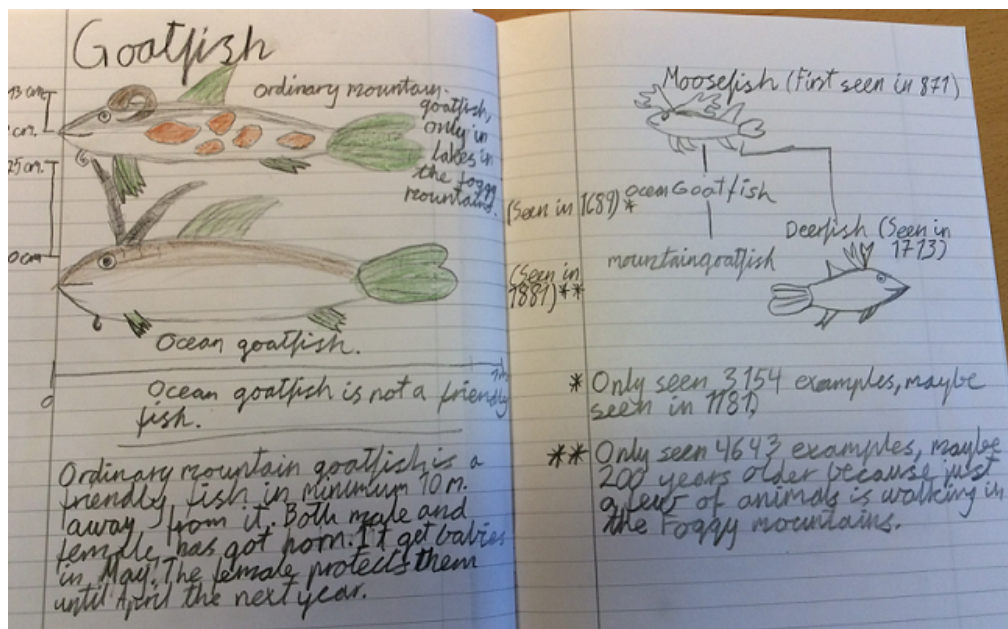 Goatfish
13 cm.
cm.
ordinary mountain-
goatfish,
only in
lakes in
the foggy
mountains.
25 cm.
0 cm
Ocean goatfish.
0
Ocean goatfish is not a friendly
fish.
Ordinary mountain goatfish is a
friendly fish in minimum 10 m.
away from it. Both male and
female, has got horn. It get babies
in May. The female protects them
until April the next year.
Moosefish (First seen in 871)
(Seen in 1689)* ocean Goatfish
Deerfish (Seen in
1713)
mountaingoatfish
(Seen in
1881)**
* Only seen 3154 examples, maybe
seen in 1181,
** Only seen 4643 examples, maybe
200 years older because just
a few of animals is walking in
the Foggy mountains.